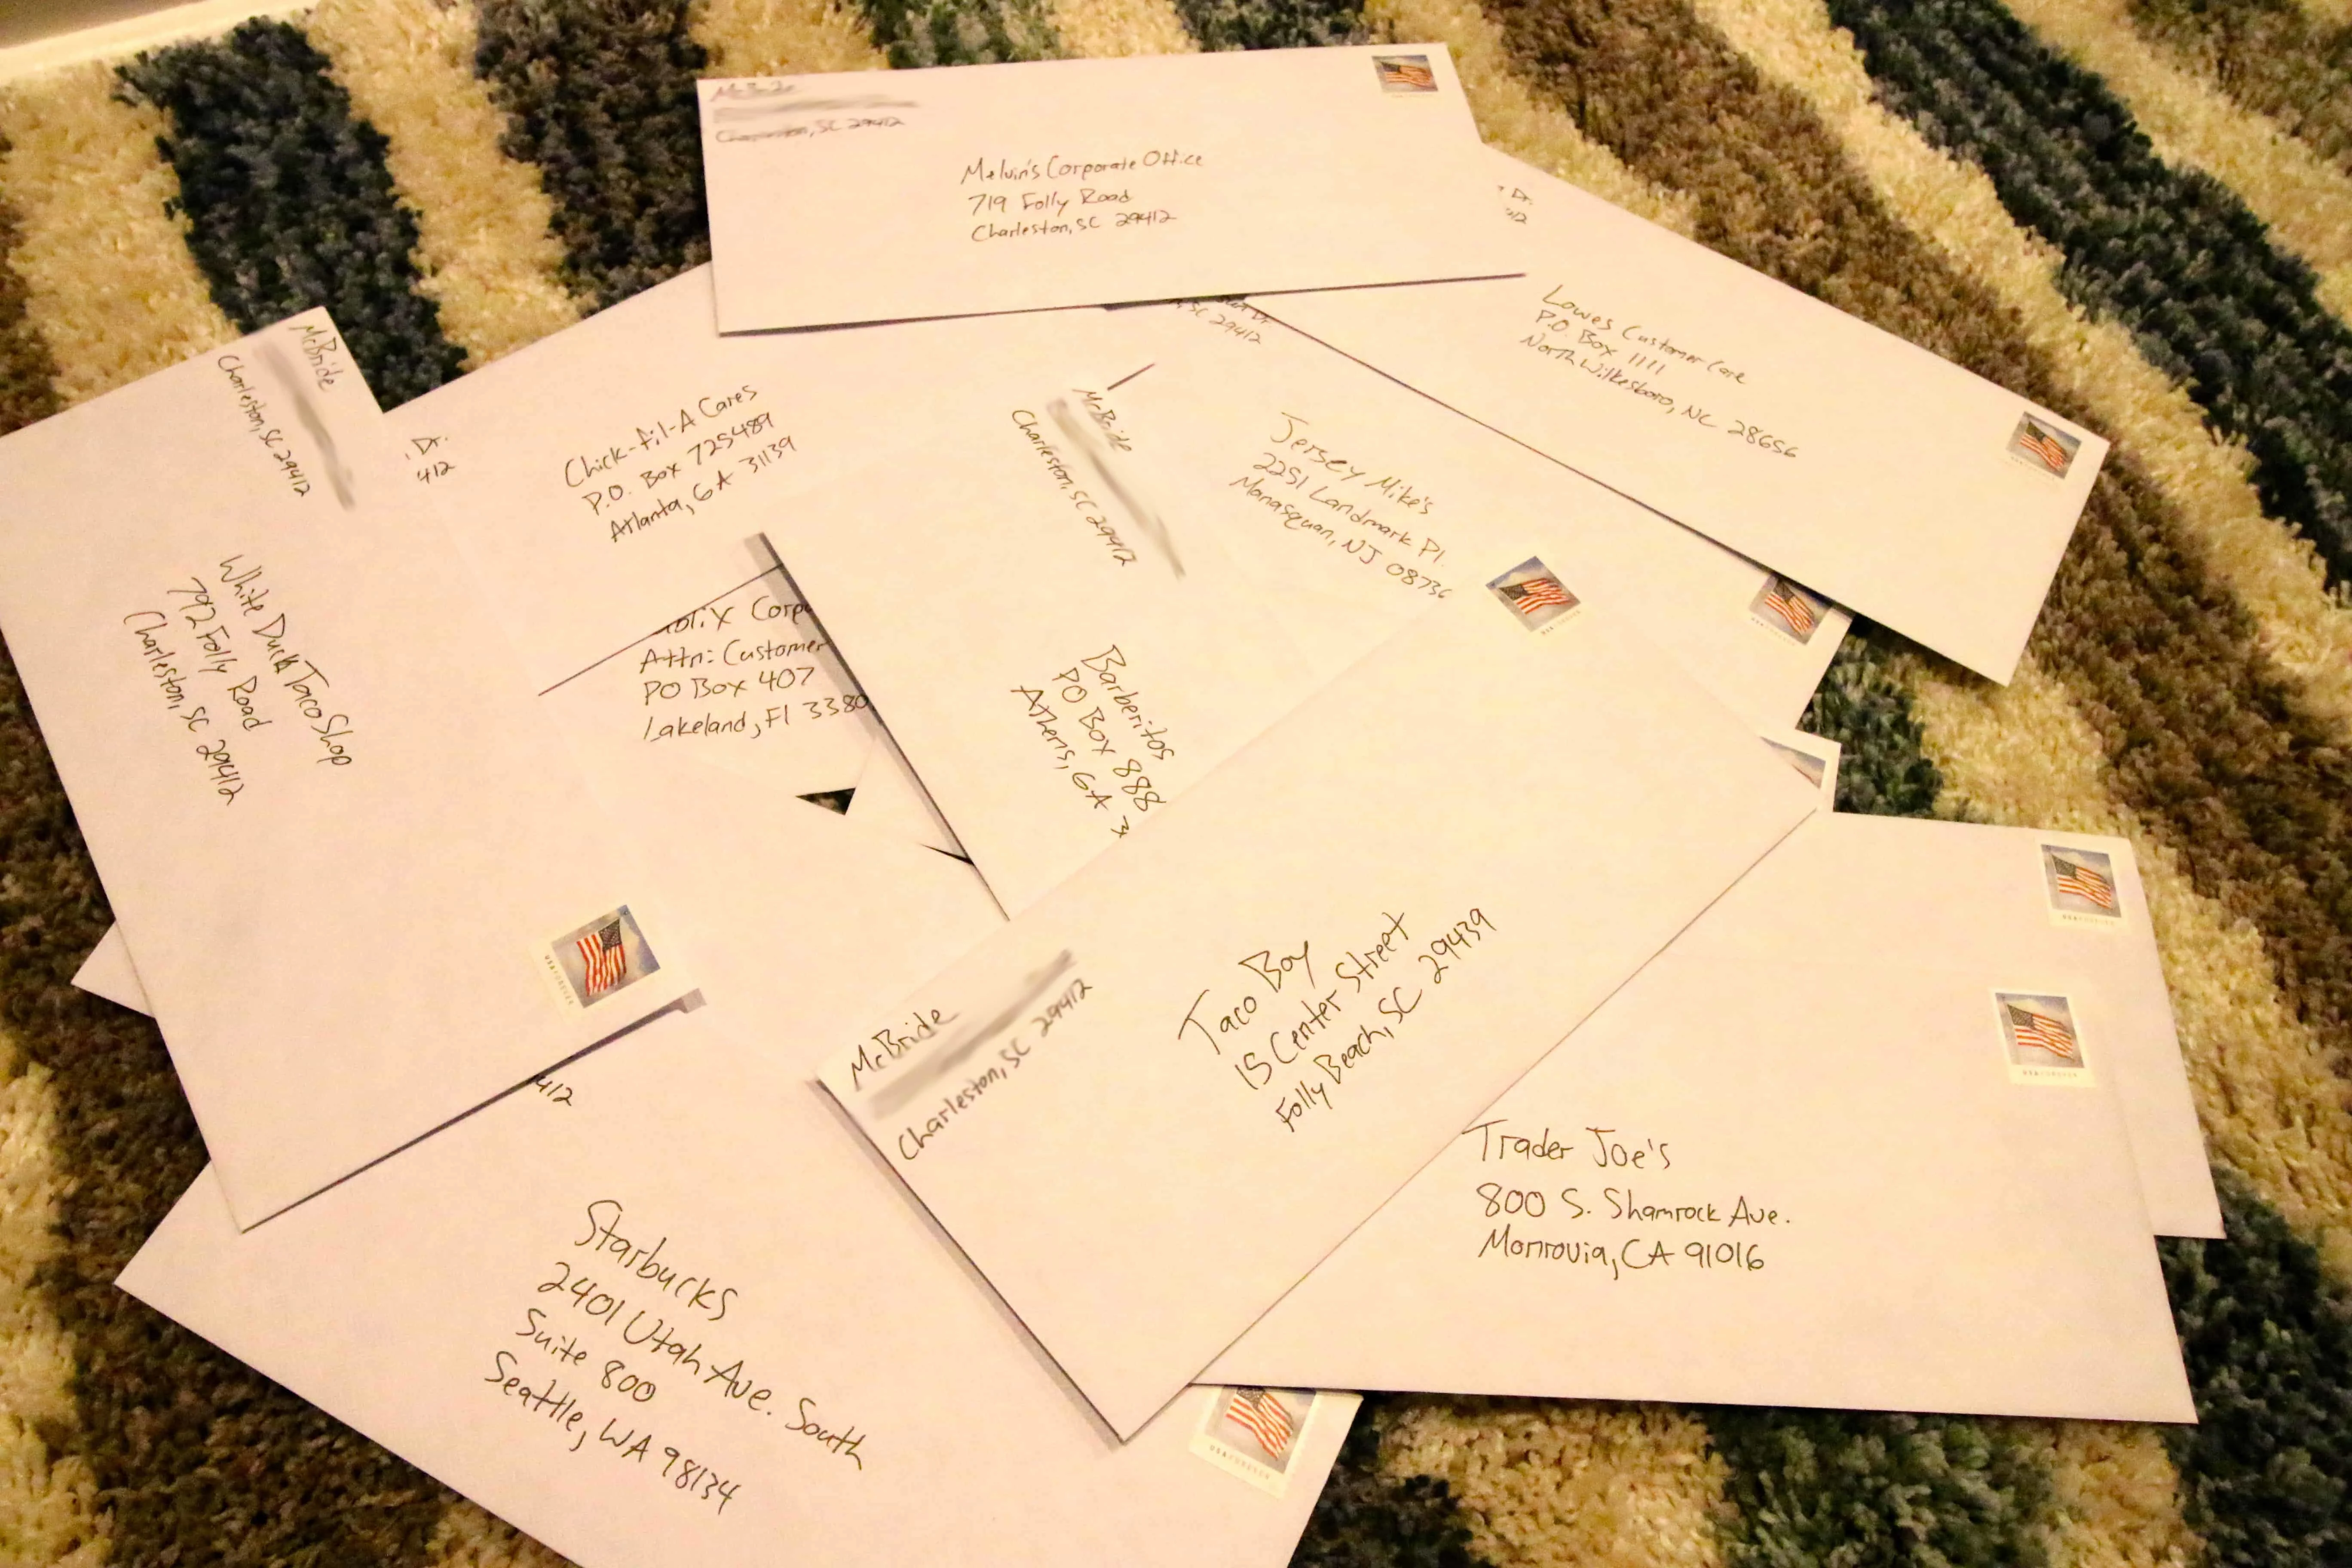 Charleston, SC 29412
Melvin's Corporate Office
719 Folly Road
Charleston, SC 29412
Dr.
Lowes Customer Care
P.O. Box 1111
North Wilkesboro, NC 28656
McBride
Charleston, SC 29412
White Duck Taco Shop
792 Folly Road
Charleston, SC 29412
Dr.
412
Chick-fil-A Cares
P.O. Box 725489
Atlanta, GA 31139
Corp
Attn: Customer
PO Box 407
Lakeland, Fl 3380
Dr
SC 29412
Jersey Mike's
2251 Landmark Pl.
Manasquan, NJ 08736
McBride
Charleston, SC 29412
Barberitos
PO Box 888
Athens, GA 3
McBride
Charleston, SC 29412
Taco Boy
15 Center Street
Folly Beach, SC 29439
Trader Joe's
800 S. Shamrock Ave.
Monrovia, CA 91016
412
Starbucks
2401 Utah Ave. South
Suite 800
Seattle, WA 98134
USA FOREVER
USA FOREVER
USA FOREVER
USA FOREVER